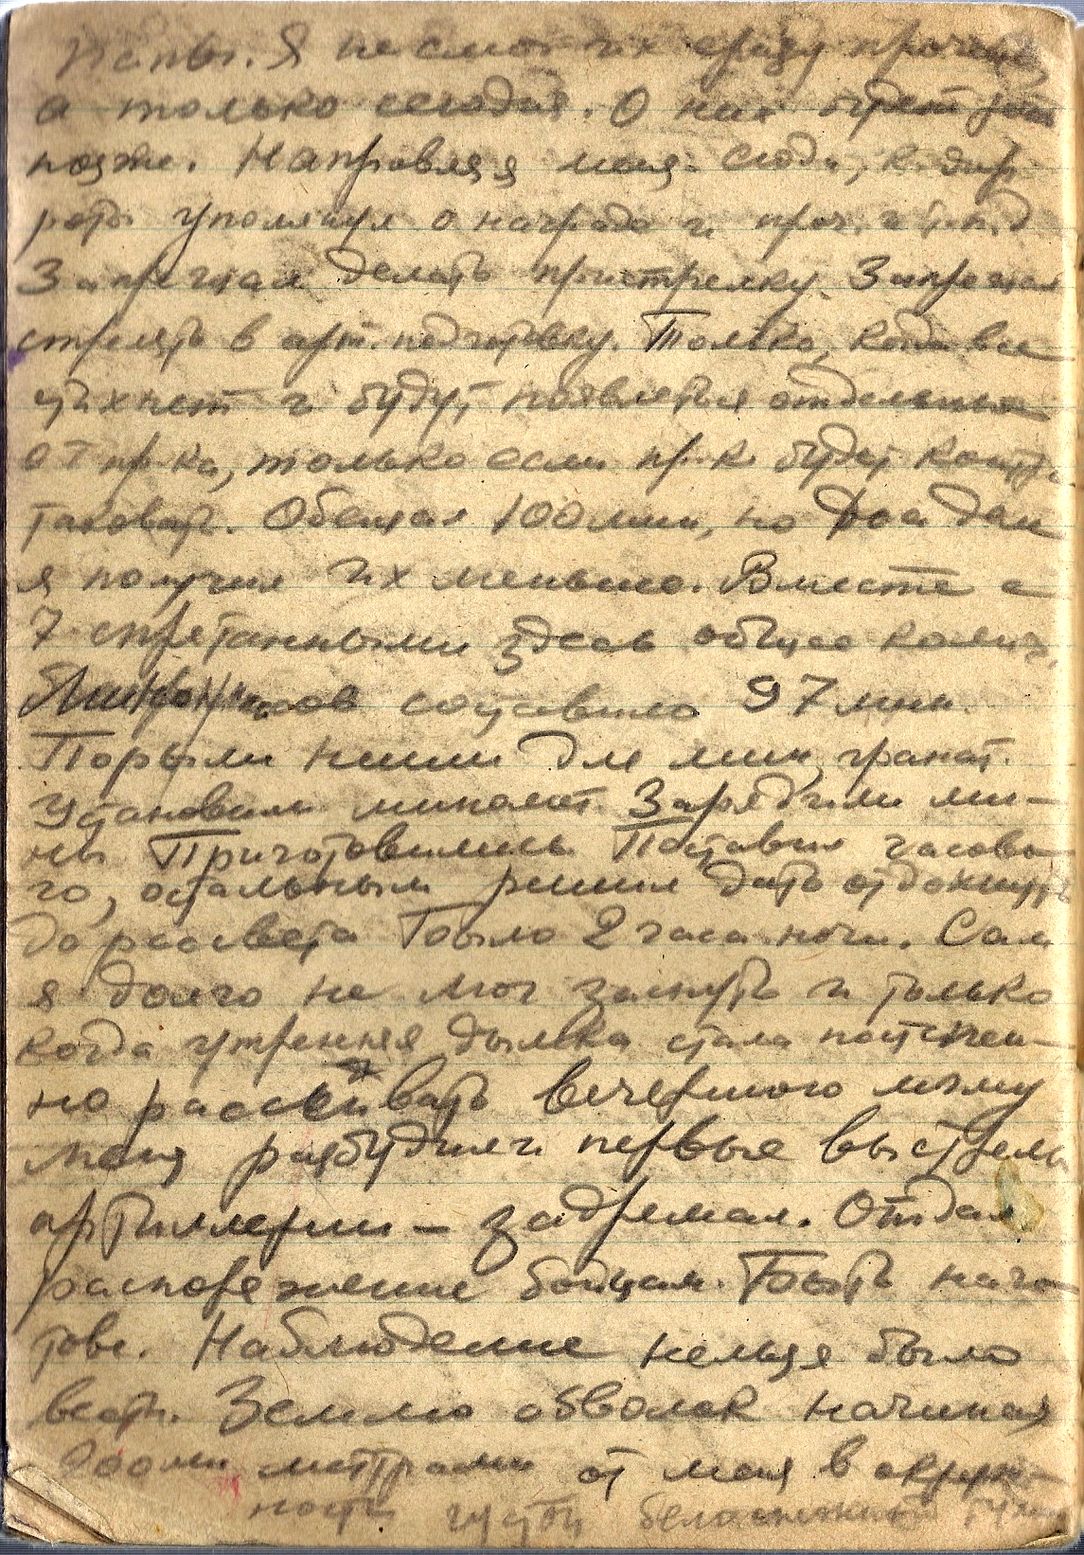 папы. Я не смог их сразу прочесть,
а только сегодня. О них будет
позже. Направляя меня сюда, к-дир
роты упомянул о награде и проч. и т.п.
Запрещал делать пристрелку. Запрещал
стрелять в арт.подготовку. Только, когда все
утихнет и будут появляться отдельные
от пр-ка, только если пр-к будет контр-
таковать. Обещал 100 мин, но
я получил их меньше. Вместе с
7 спрятанными здесь общее колич.
составило 97 мин.
Порыли ниши для мин, гранат.
Установили миномет. Зарядили ми-
ны Приготовились. Поставил часово-
го, остальным решил дать отдохнуть
до рассвета Было 2 часа ночи. Сам
я долго не мог заснуть и только
когда утренняя дымка стала постепен-
но рассеивать вечернюю мглу
меня разбудили первые выстрелы
артиллерии – задремал. Отдал
распоряжение бойцам. Быть наго-
тове. Наблюдение нельзя было
вести. Землю обволок начиная
200ми метрами от меня в окруж-
ности густой белоснежный туман